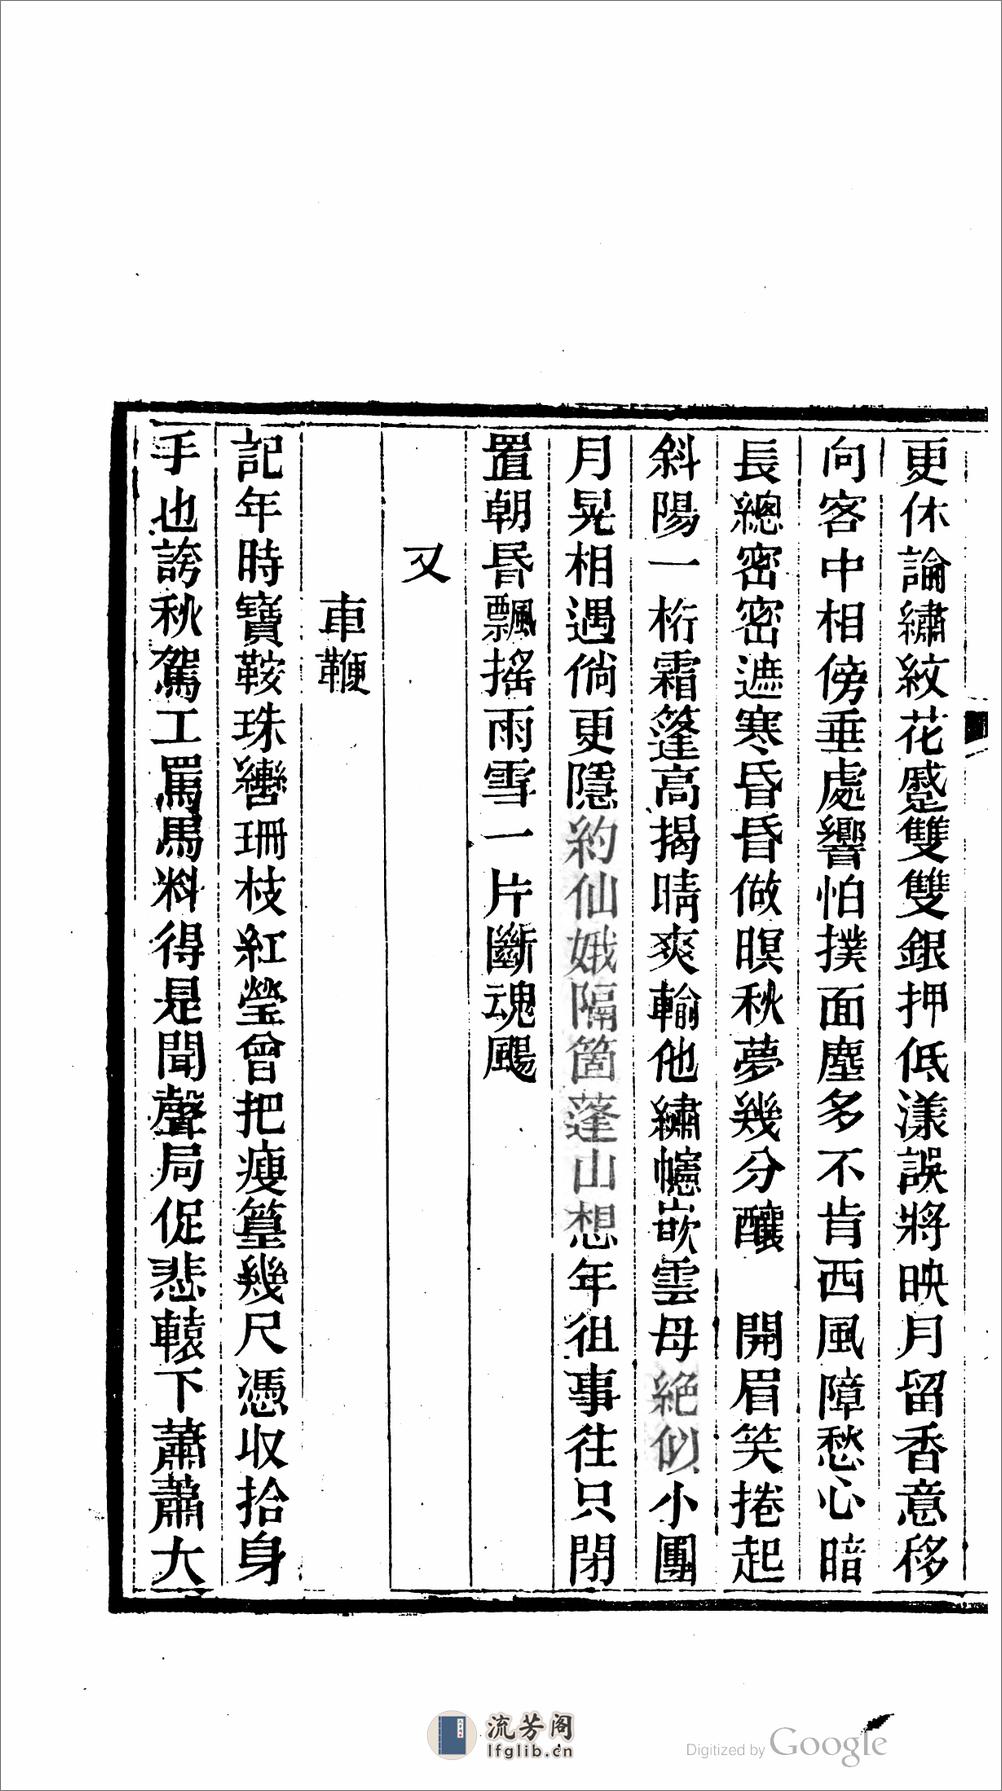 更休論繡紋花蹙雙雙銀押低漾誤將映月留香意移
向客中相傍垂處響怕撲面塵多不肯西風障愁心暗
長總密密遮寒昏昏做暝秋夢幾分釀　開眉笑捲起
斜陽一桁霜篷高揭晴爽輸他繡幰嵌雲母絕似小團
月晃相遇倘更隱約仙娥隔箇蓬山想年徂事往只閉
置朝昏飄搖雨雪一片斷魂颺
又
車鞭
記年時寶鞍珠轡珊枝紅瑩曾把瘦篁幾尺憑收拾身
手也誇秋駕工罵馬料得是聞聲局促悲轅下蕭蕭大
流芳阁
lfglib.cn
Digitized by Google